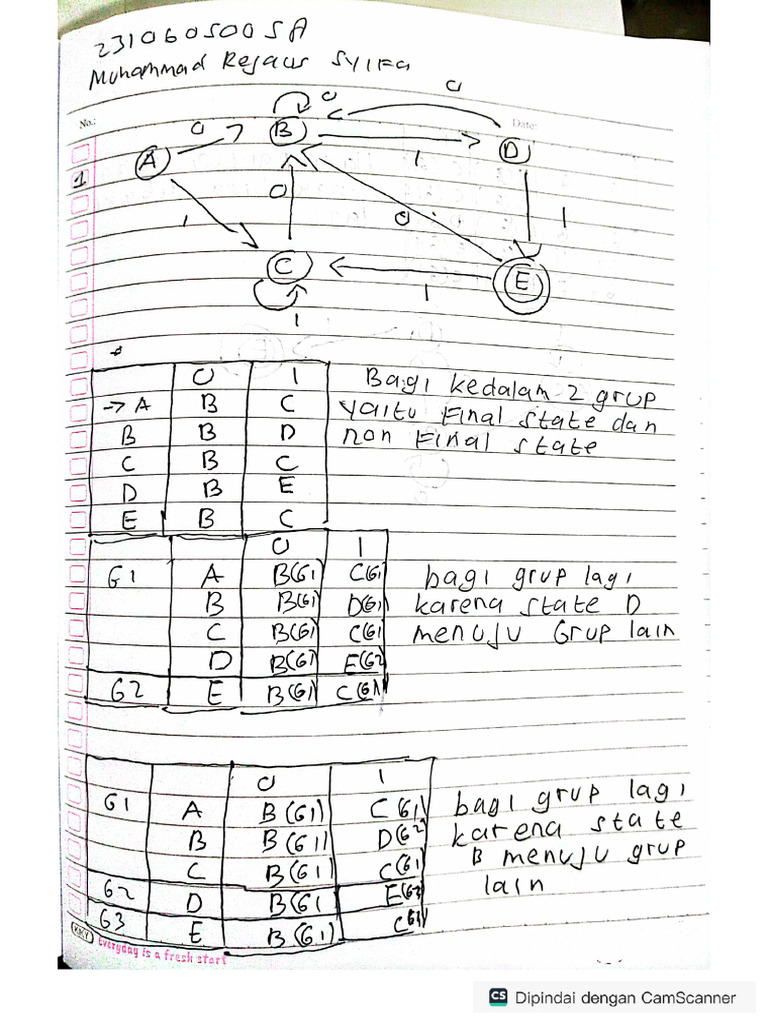 2310605005A
Muhammad Rejaus Syifa
No.:
Date:
1
0
0
0
A
B
1
D
0
1
0
1
C
1
E
1
0 1
→ A B C
B B D
C B C
D B E
E B C
Bagi kedalam 2 grup
yaitu Final state dan
non Final state
0 1
G1 A B(G1) C(G1)
B B(G1) D(G1)
C B(G1) C(G1)
D B(G1) E(G2)
G2 E B(G1) C(G1)
bagi grup lagi
karena state D
menuju Grup lain
0 1
G1 A B(G1) C(G1)
B B(G1) D(G2)
C B(G1) C(G1)
G2 D B(G1 E(G3)
G3 E B(G1) C(G1)
bagi grup lagi
karena state
B menuju grup
lain
KKY everyday is a fresh start
CS Dipindai dengan CamScanner